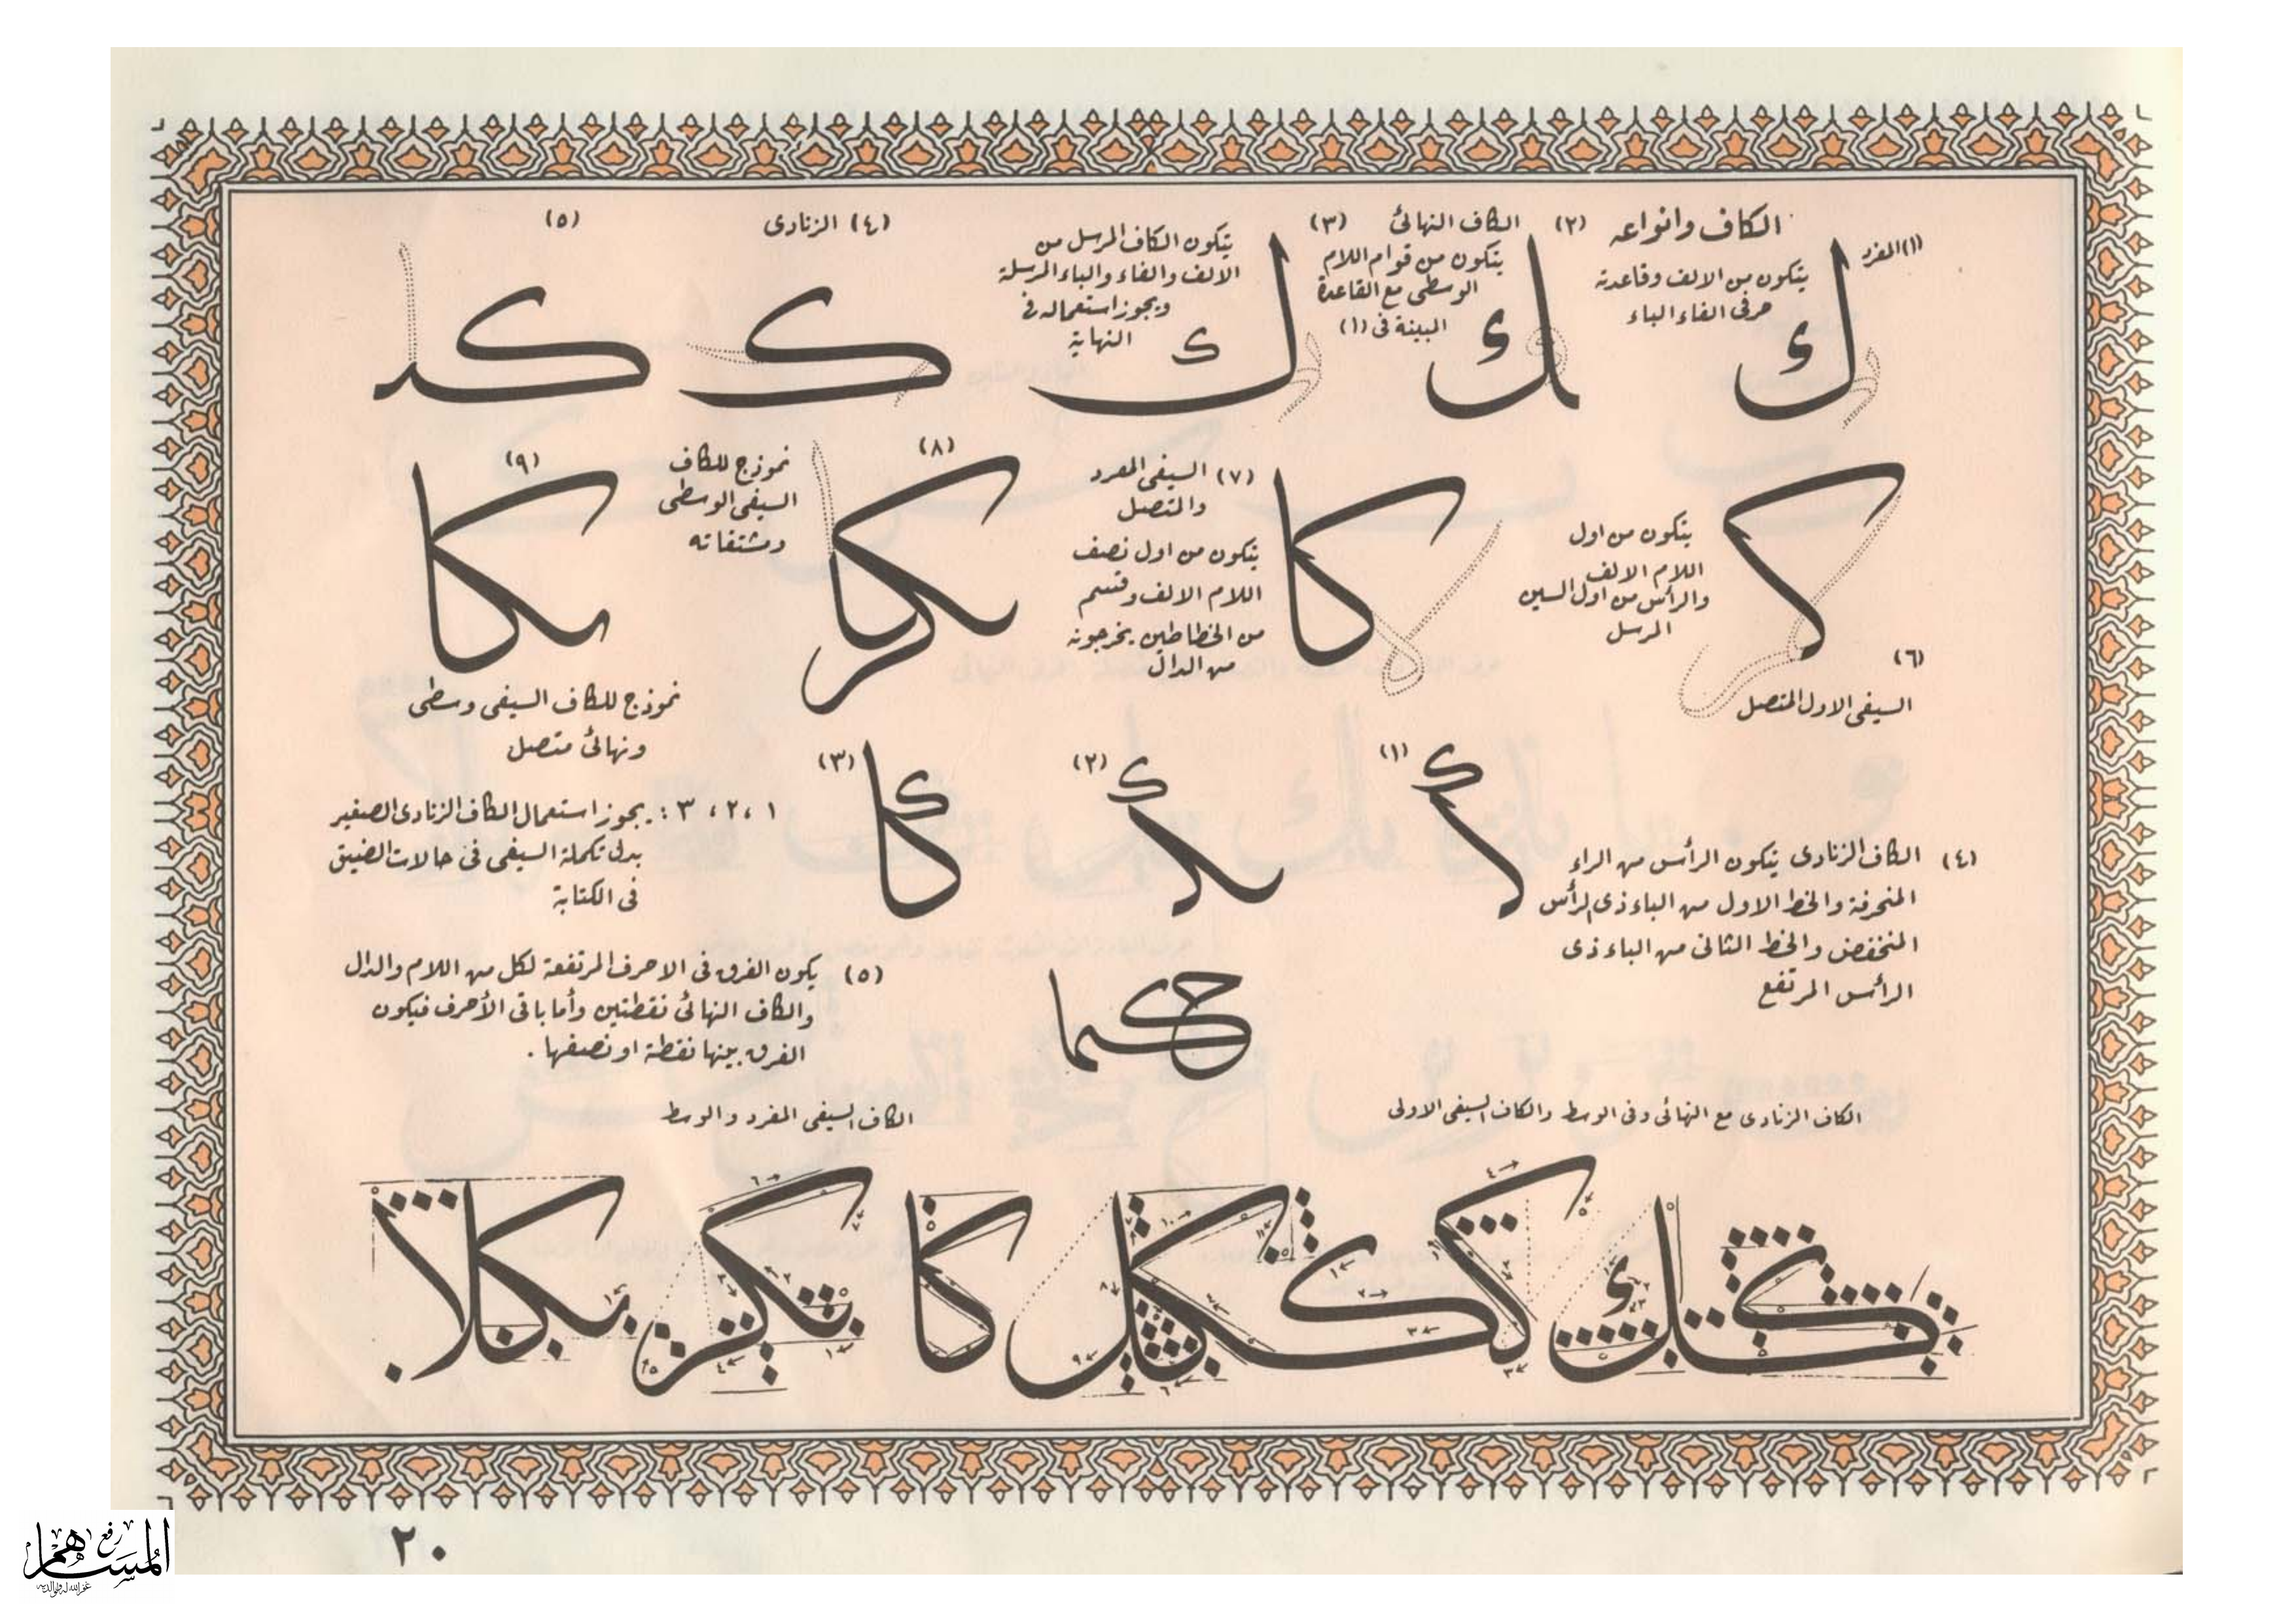 الكاف وانواعه
(١) المفرد
يتكون من الالف وقاعدته
حرفى الفاء الباء
ك
(٢) الكاف النهائى
يتكون من قوام اللام
الوسطى مع القاعدة
المبينة فى (١)
ك
(٣)
يتكون الكاف المرسل من
الالف والفاء والباء المرسلة
ويجوز استعماله فى
النهاية
ك
(٤) الزنادى
ك
(٥)
كد
يتكون من اول
اللام الالف
والرأس من اول السين
المرسل
(٦)
السيفى الاول المتصل
(٧) السيفى المفرد
والمتصل
يتكون من اول نصف
اللام الالف وقسم
من الخطاطين يخرجونه
من الدال
كا
(٨)
نموذج للكاف
السيفى الوسطى
ومشتقاته
(٩)
كا
نموذج للكاف السيفى وسطى
ونهائى متصل
(١)
(٢)
(٣)
كا
١ ، ٢ ، ٣ : يجوز استعمال الكاف الزنادى الصغير
بدل تكملة السيفى فى حالات الضيق
فى الكتابة
(٤) الكاف الزنادى يتكون الرأس من الراء
المنحرفة والخط الاول من الباء ذى الرأس
المنخفض والخط الثانى من الباء ذى
الرأس المرتفع
حكما
(٥) يكون الفرق فى الاحرف المرتفعة لكل من اللام والدال
والكاف النهائى نقطتين وأما باقى الأحرف فيكون
الفرق بينها نقطة او نصفها .
الكاف الزنادى مع النهائى وفى الوسط والكاف السيفى الاولى
الكاف السيفى المفرد والوسط
كا
٢٠